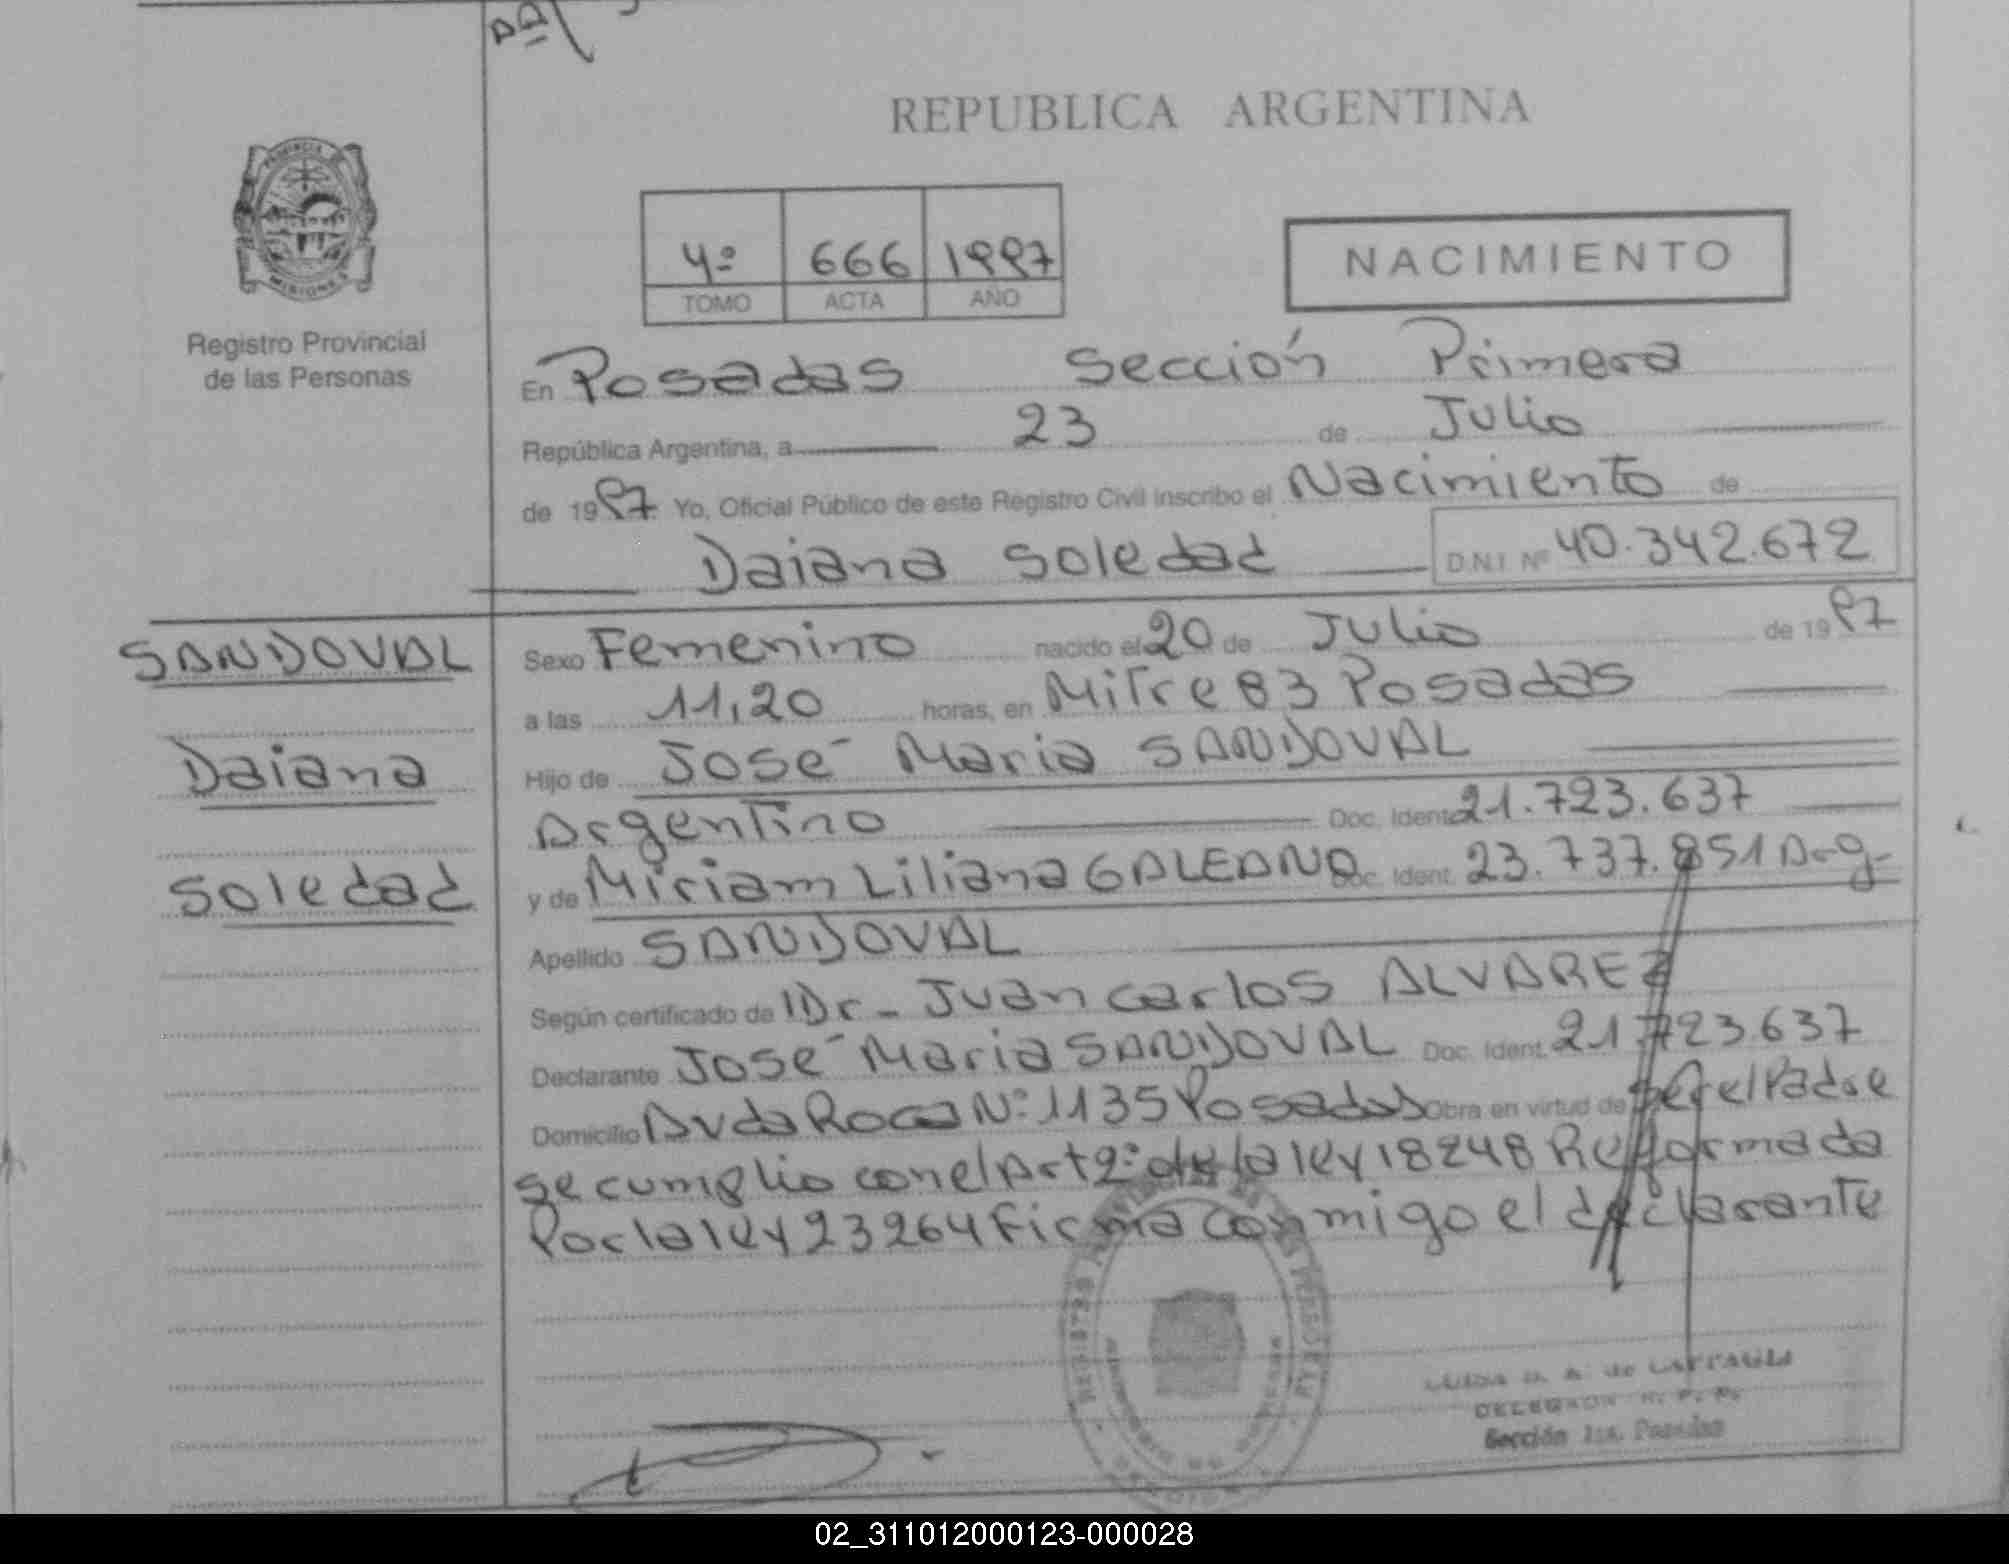 REPUBLICA ARGENTINA
PROVINCIA DE
MISIONES
Registro Provincial
de las Personas
4º 666 1997
TOMO ACTA AÑO
NACIMIENTO
En Posadas Sección Primera
República Argentina, a 23 de Julio
de 1997. Yo, Oficial Público de este Registro Civil inscribo el Nacimiento de
Daiana Soledad D.N.I. Nº 40.342.672
SANDOVAL
Daiana
Soledad
Sexo Femenino nacido el 20 de Julio de 1997
a las 11,20 horas, en Mitre 83 Posadas
Hijo de José Maria SANDOVAL
Argentino Doc. Ident. 21.723.637
y de Miriam Liliana GALEANO Doc. Ident. 23.737.851 Arg-
Apellido SANDOVAL
Según certificado de Dr- Juan Carlos ALVAREZ
Declarante José Maria SANDOVAL Doc. Ident. 21.723.637
Domicilio Avda Roca Nº 1135 Posadas Obra en virtud de ser el Padre
se cumplio con el Art 2º de la ley 18248 Reformada
Por la ley 23264 Firma conmigo el declarante
DELEGADA R. P. P.
Sección 1ra. Posadas
02_311012000123-000028